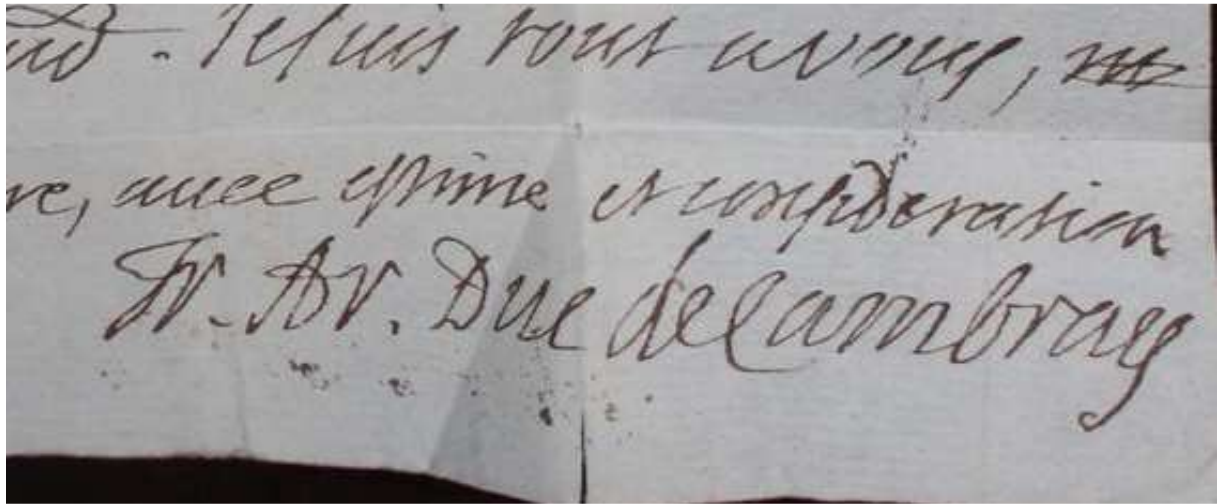 . Je suis tout a vous,
re, avec estime et consideration
Fr. Ar. Duc de Cambray